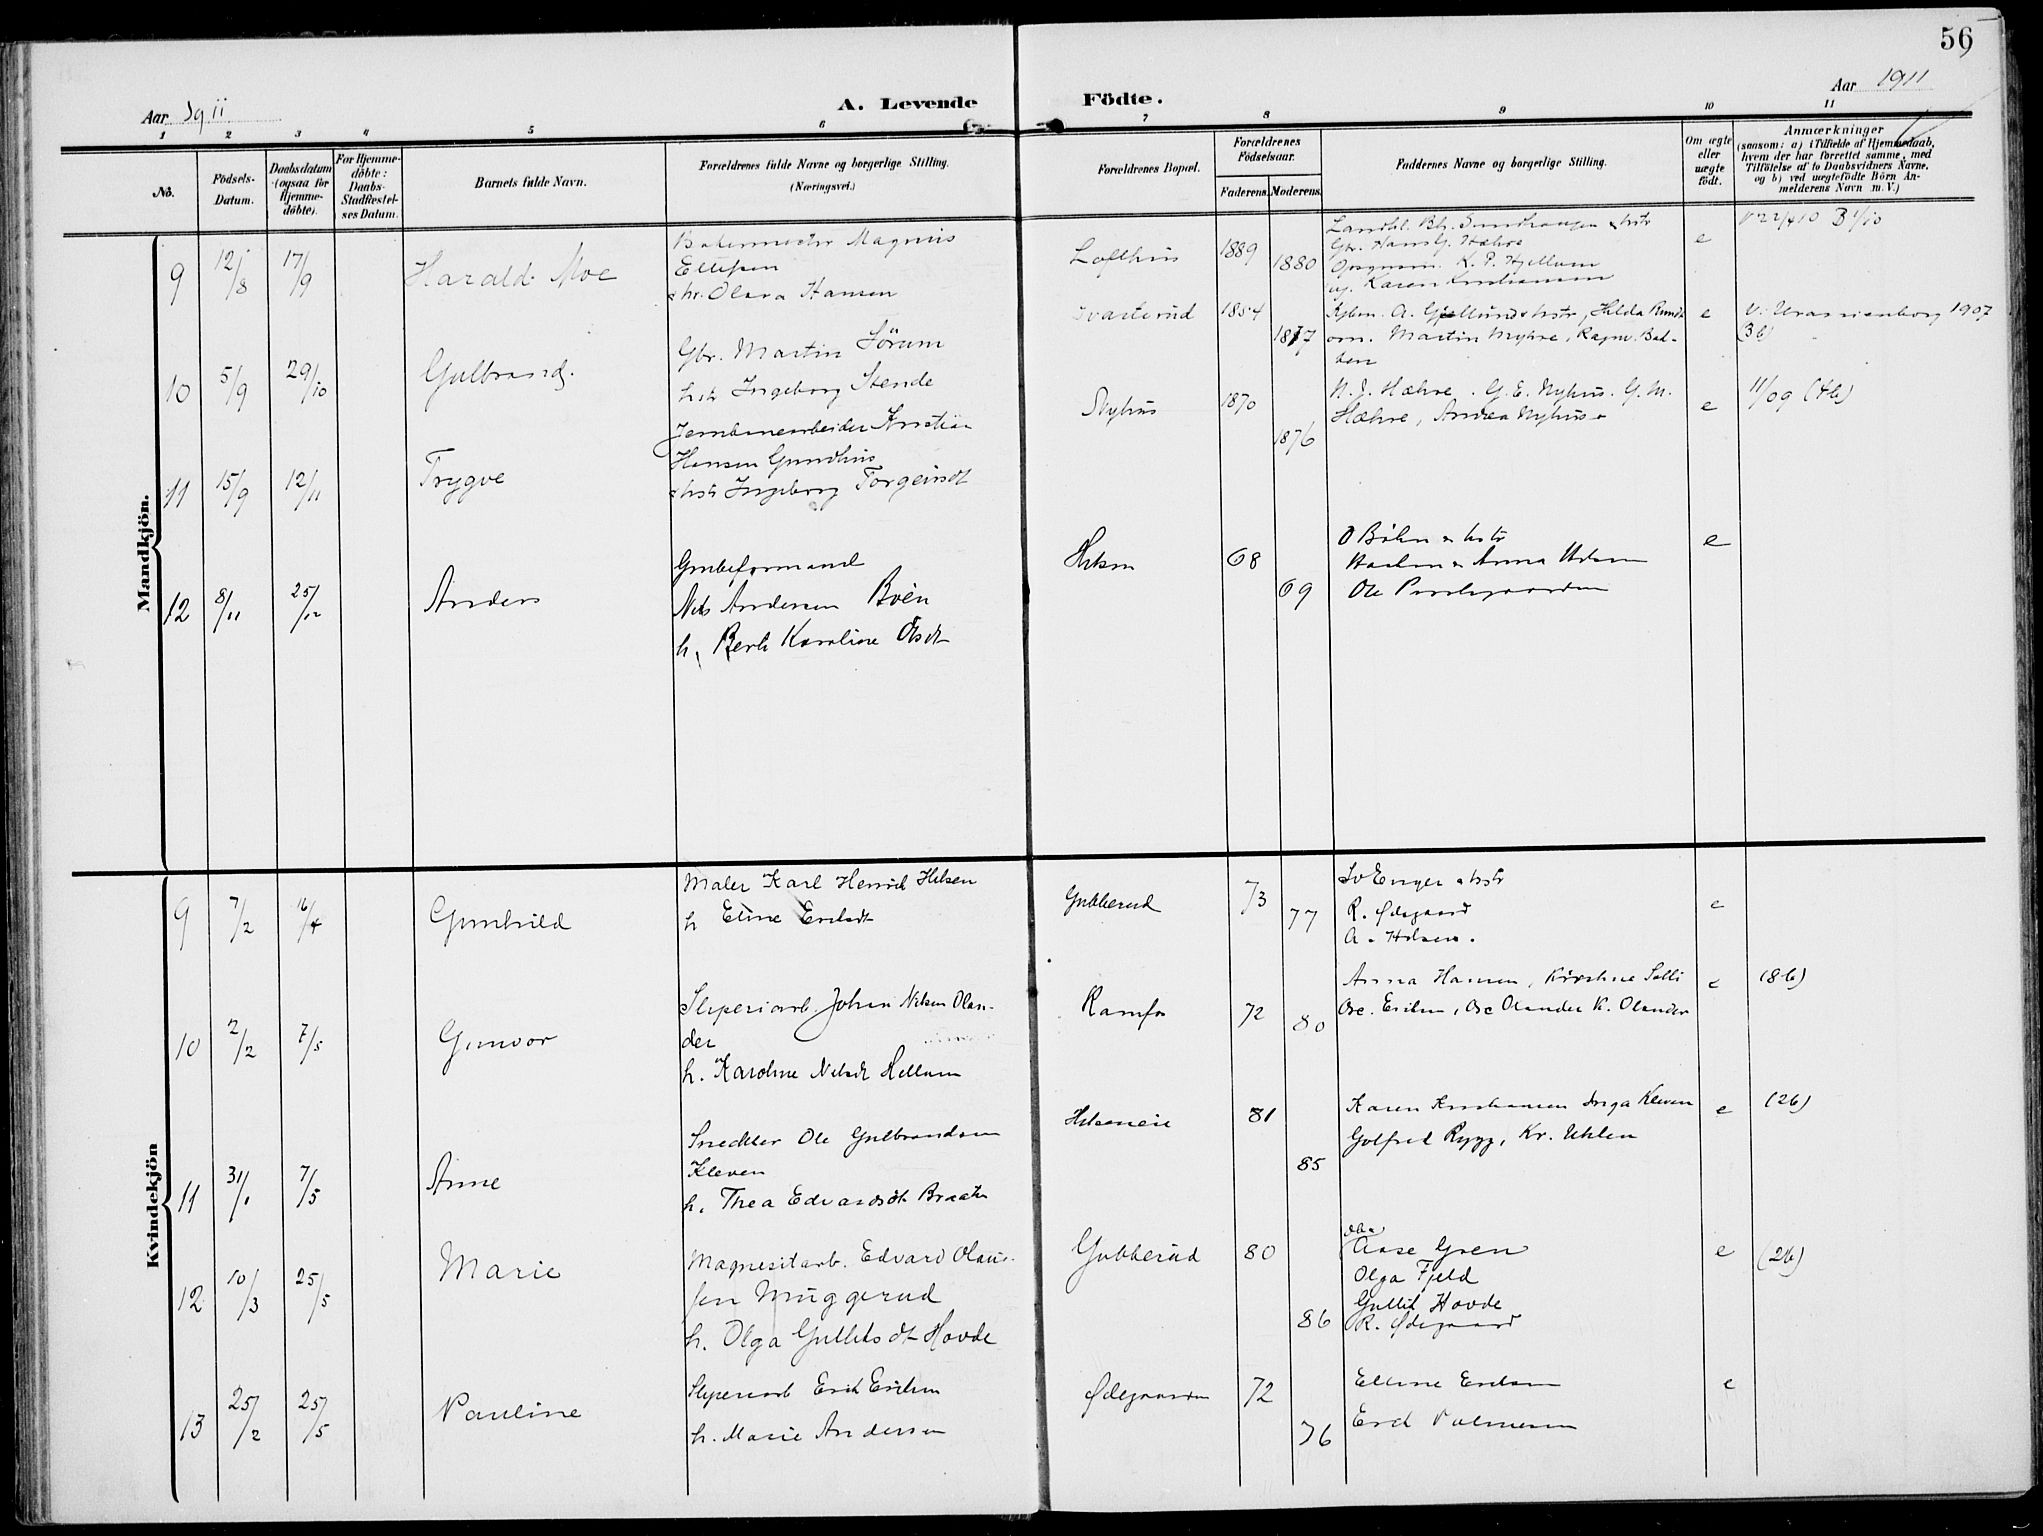 56
Aar 1911
A. Levende
Födte.
Aar 1911
1 2 3 4 5 6 7 8 9 10 11
No.
Födsels-Datum.
Daabsdatum (ogsaa for Hjemmedöbte).
For Hjemmedöbte: Daabs-Stadfestelses Datum.
Barnets fulde Navn.
Forældrenes fulde Navne og borgerlige Stilling.
(Næringsvei.)
Forældrenes Bopæl.
Forældrenes Födselsaar.
Faderens. Moderens.
Faddernes Navne og borgerlige Stilling.
Om ægte eller uægte födt.
Anmærkninger
(saasom: a) i Tilfælde af Hjemmedaab, hvem der har forrettet samme, med Tilföielse af to Daabsvidners Navne. og b) ved uægtefödte Börn Anmelderens Navn m. V.)
Mandkjön.
9 12/8 17/9 Harald Moe
Bakermester Magnus
Ellefsen
Olava Hansen
Lofthus 1889 1880
Gbr. Hans G. Hæhre
K. P. Hjellum
Karen Kristiansen
e
10 5/9 29/10 Gulbrand
Gbr. Martin Sörum
hstr Ingeborg Stende
1854 1877
Kjbm. A. Gjellund &hstr, Hilda Rund
Martin Myhre, Ragnv. Bak-
ken
e
V. Uranienborg 1907
(3b)
11 15/9 12/11 Trygve
Jernbanearbeider Kristian
Hansen Gundhus
&hstr Ingeborg Torgersdt
Nyhus 1870 1876
N. J. Hæhre. G. E. Nyhus. G. M.
Hæhre, Andrea Nyhus
e
11/09 (4b)
12 8/11 25/12 Anders
Grubeformand
Nils Andersen Böen
h. Berth Karoline Olsdt
68 69
O Böhn & hstr
e
Kvindekjön
9 7/2 16/4 Gunhild
Maler Karl Henrik Hilsen
h Eline Eriksdt
Gubberud 73 77
Enger & hstr
R. Ødegaard
A. Hilsen.
e
10 2/2 7/5 Gunvor
Sliperiarb. Johan Nilsen Olan-
der
h. Karoline Nilsdt Hellum
Ramfos 72 80
Anna Hansen, Kirstine Solli
Osc. Eriksen, Osc Olander K. Olander
e
(8b)
11 31/1 7/5 Anne
Snedker Ole Gulbrandsen
Kleven
h. Thea Edvardsdt Braaten
81 85
Karen Kristiansen Inga Kleven
Golfred Rygg, Kr. Uhlen
e
(2b)
12 10/3 25/5 Marie
Magnesitarb. Edvard Olaus-
sen Muggerud
h. Olga Gulliksdt Hovde
Gubberud 80 86
Aase Gren
Olga Fjeld
Gullik Hovde
R. Ødegaard
e
(2b)
13 25/2 25/5 Pauline
Sliperiarb Erik Eriksen
h. Marie Andersen
Ødegaarden 72 76
Elline Eriksen
e